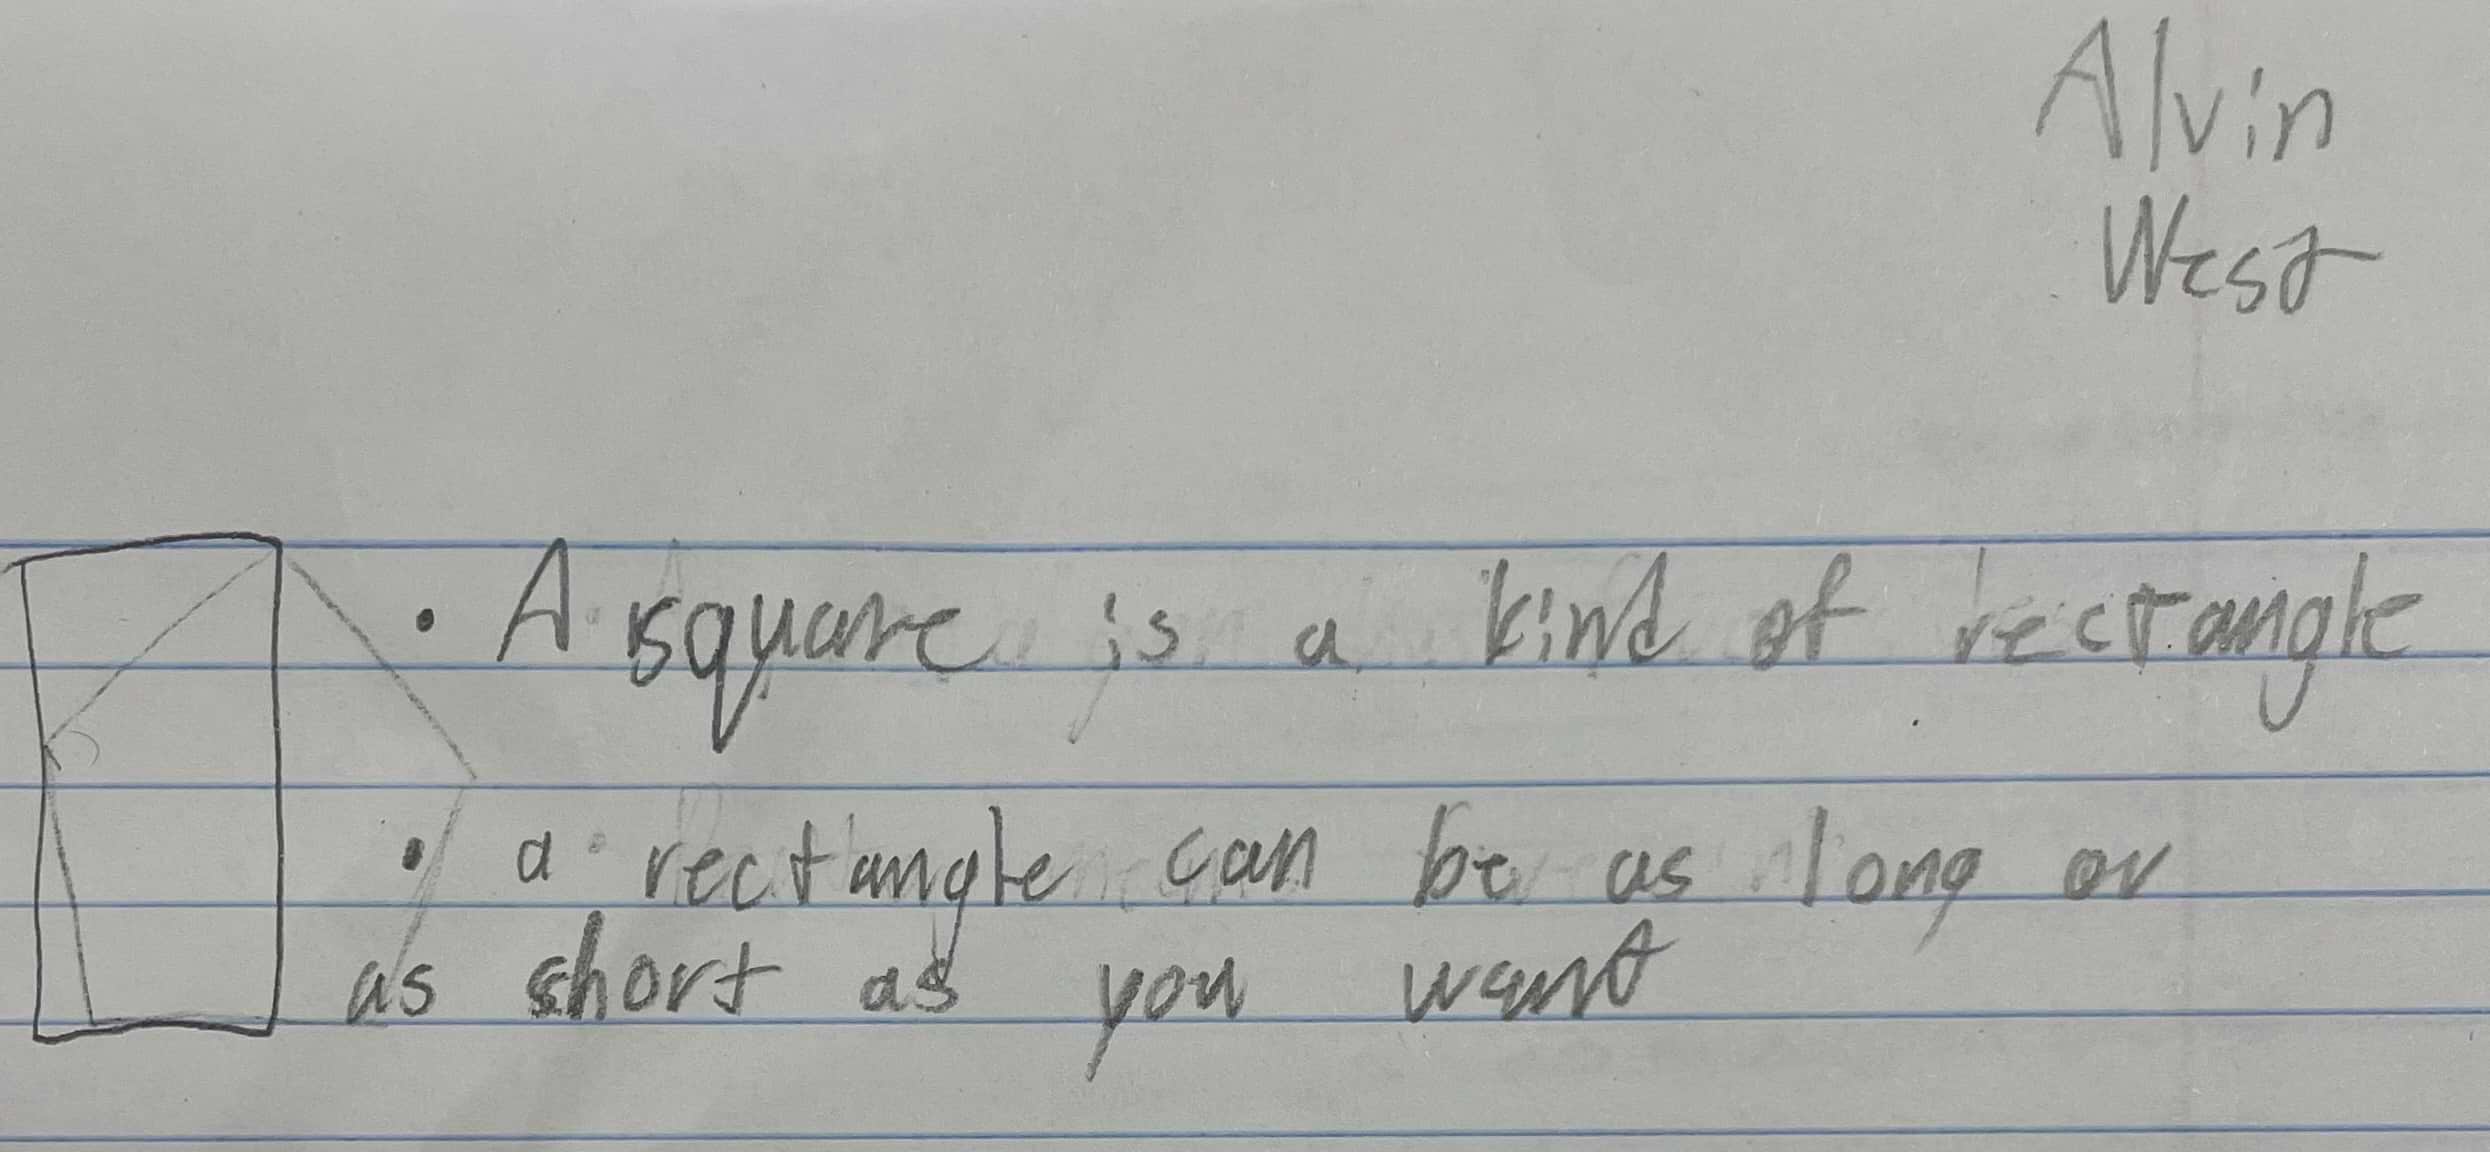 Alvin
West
• A square is a kind of rectangle
• a rectangle can be as long or
as short as you want